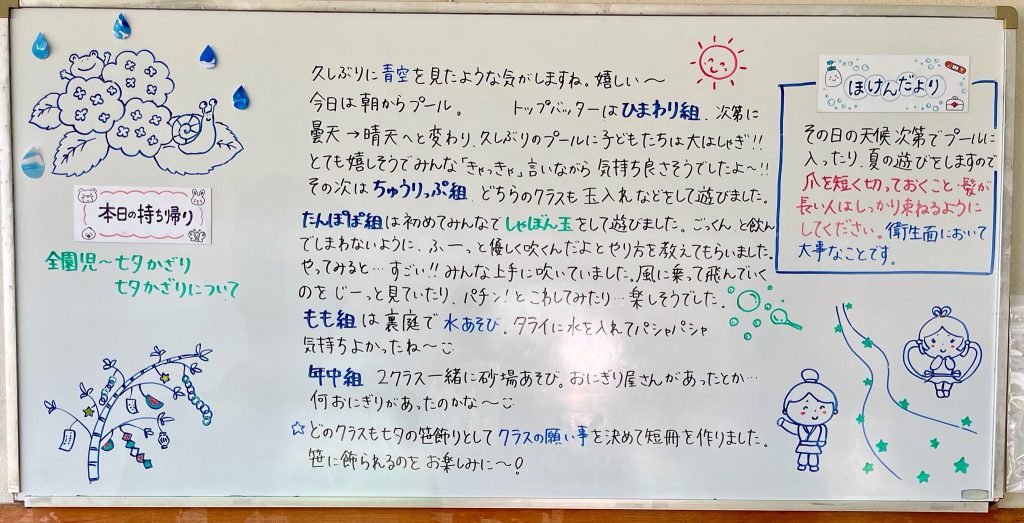 本日の持ち帰り
全園児〜七夕かざり
七夕かざりについて
久しぶりに青空を見たような気がしますね。嬉しい〜
今日は朝からプール。 トップバッターはひまわり組、次第に
曇天→晴天へと変わり、久しぶりのプールに子どもたちは大はしゃぎ!!
とても嬉しそうでみんな「きゃっきゃ」言いながら 気持ち良さそうでしたよ〜!!
その次はちゅうりっぷ組、どちらのクラスも 玉入れなどをして遊びました。
たんぽぽ組は初めてみんなでしゃぼん玉をして遊びました。ごっくん と飲ん
でしまわないように、ふーっと優しく吹くんだよとやり方を教えてもらいました。
やってみると…すごい!!みんな上手に吹いていました。風に乗って飛んでいく
のを じーっと見ていたり、パチン!とこわしてみたり…楽しそうでした。
もも組は裏庭で 水あそび。タライに水を入れてパシャパシャ
気持ちよかったね〜
年中組 2クラス一緒に砂場あそび。おにぎり屋さんがあったとか…
何おにぎりがあったのかな〜
☆どのクラスも七夕の笹飾りとして クラスの願い事を決めて短冊を作りました。
笹に飾られるのを お楽しみに〜!
ほけんだより
その日の天候次第でプールに
入ったり、夏の遊びをしますので
爪を短く切っておくこと・髪が
長い人はしっかり束ねるように
してください。衛生面において
大事なことです。